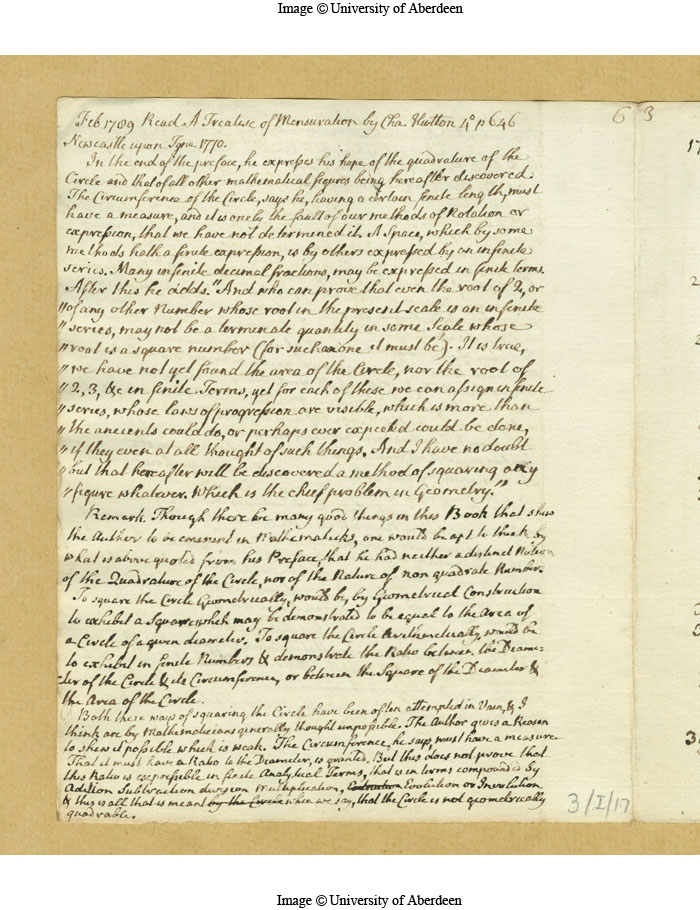 Image © University of Aberdeen
Feb 1789 Read A Treatise of Mensuration by Cha. Hutton 4° p 646
6 3
Newcastle upon Tyne 1770.
In the end of the preface, he expresses his hope of the quadrature of the
Circle and that of all other mathematical figures being hereafter discovered.
The Circumference of the Circle, says he, having a certain finite length, must
have a measure, and it is onely the fault of our methods of Notation or
expression, that we have not determined it. A Space, which by some
methods hath a finite expression, is by others expressed by an infinite
series. Many infinite decimal fractions, may be expressed in finite terms.
After this he adds. "And who can prove that even the root of 2, or
"of any other Number whose root in the present scale is an infinite
"series, may not be a terminate quantity in some Scale whose
"root is a square number (for such an one it must be). It is true,
"we have not yet found the area of the Circle, nor the root of
"2, 3, &c in finite Terms, yet for each of these we can assign infinite
"series, whose laws of progression are visible, which is more than
"the ancients could do, or perhaps ever expected could be done,
"if they even at all thought of such things. And I have no doubt
"but that hereafter will be discovered a method of squaring any
"figure whatever. Which is the chief problem in Geometry."
Remark. Though there be many good things in this Book that shew
the Author to be eminent in Mathematicks, one would be apt to think by
what is above quoted from his Preface, that he had neither a distinct Notion
of the Quadrature of the Circle, nor of the Nature of non quadrate Numbers
To square the Circle Geometrically, would be, by Geometrical Construction
to exhibit a Square which may be demonstrated to be equal to the Area of
a Circle of a given diameter. To square the Circle Arithmetically, would be
to exhibit in finite Numbers & demonstrate the Ratio between the Diame-
ter of the Circle & its Circumference, or between the Square of the Diameter &
the Area of the Circle.
Both these ways of squaring the Circle have been often attempted in Vain, & I
think are by Mathematicians generally thought impossible. The Author gives a Reason
to shew it possible which is weak. The Circumference, he says, must have a measure
That it must have a Ratio to the Diameter, is granted. But this does not prove that
this Ratio is expressible in finite Analytical Terms, that is in terms compounded by
Addition Subtraction division Multiplication, Extraction Evolution or Involution
& this is all that is meant by the Circle when we say, that the Circle is not geometrically
quadrable.
3/I/17
Image © University of Aberdeen